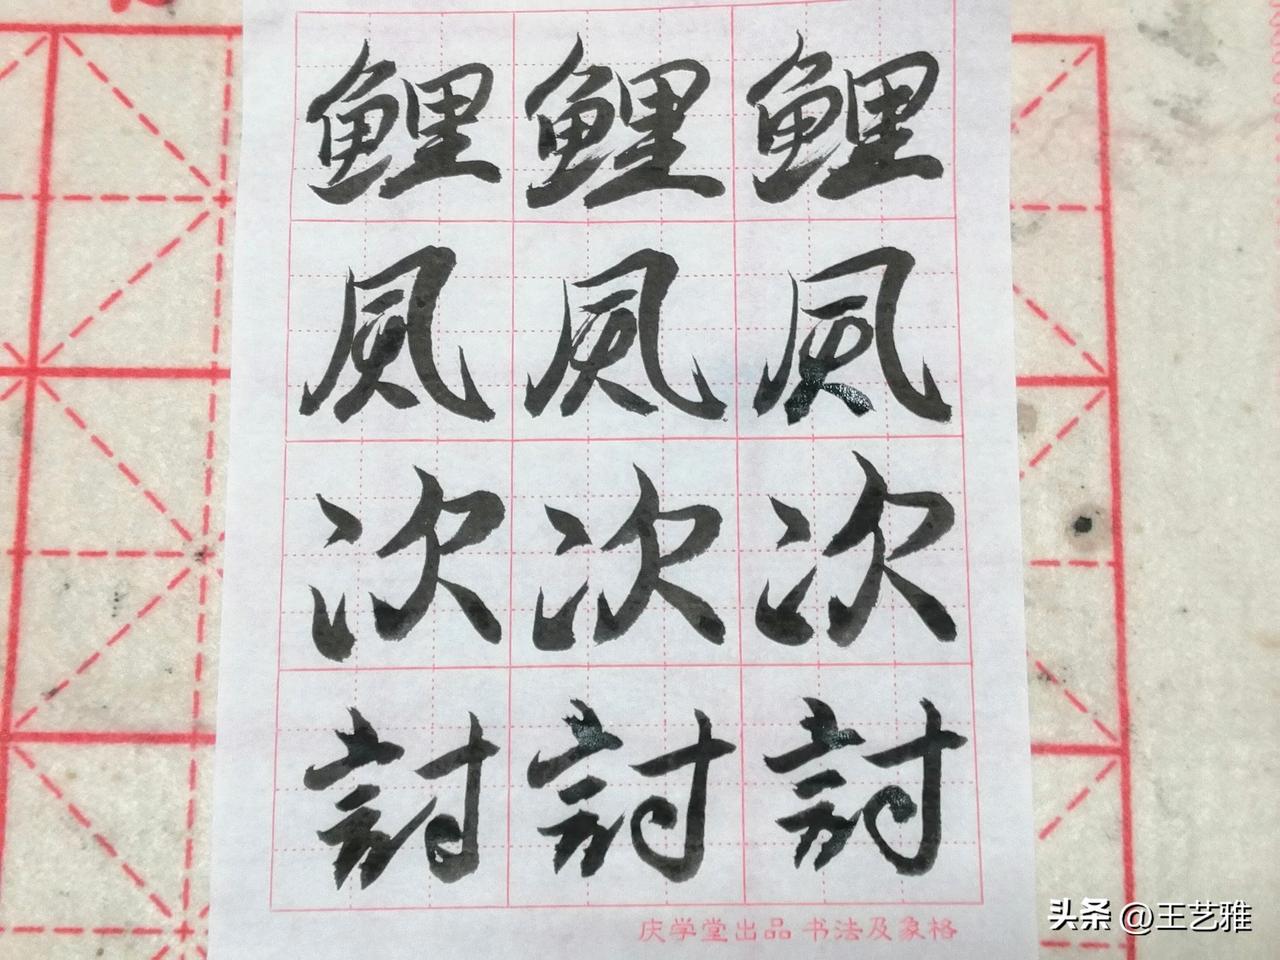 鲤鲤鲤
夙夙夙
次次次
討討討
庆学堂出品 书法及象格
头条 @王艺雅